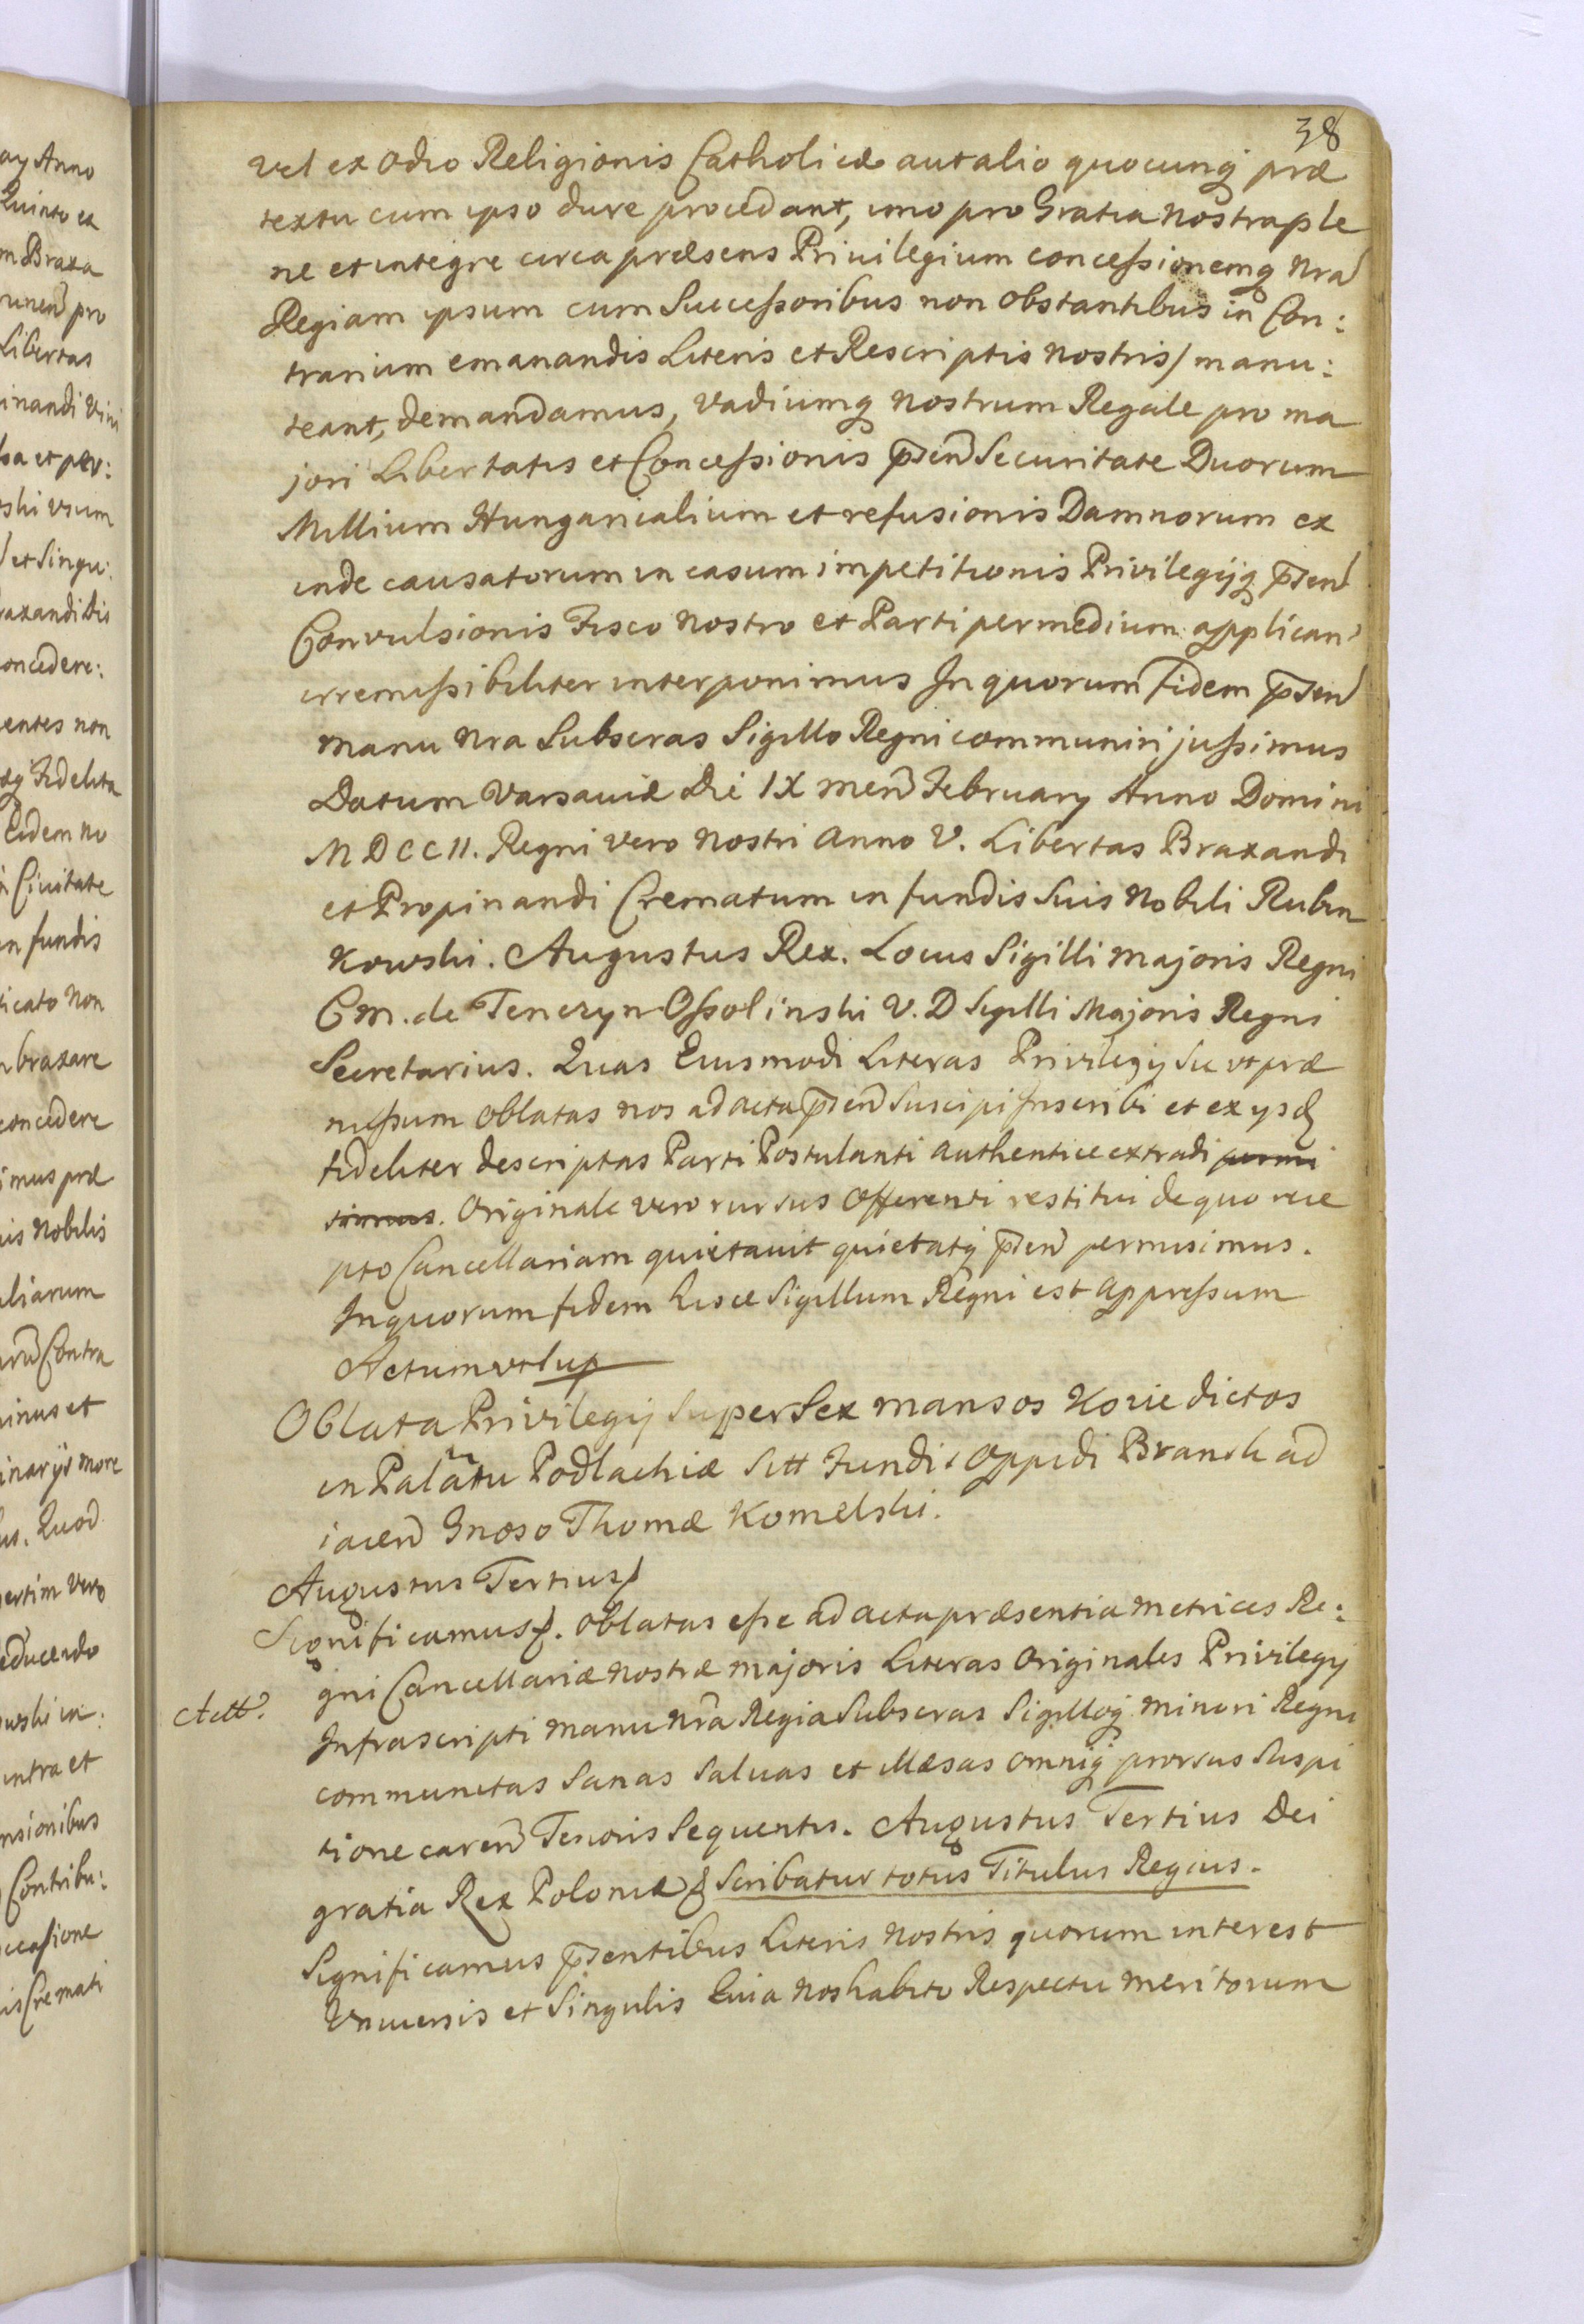 38
vel ex odio Religionis Catholicæ aut alio quocunq præ
textu cum ipso dure procedant, imo pro Gratia Nostra ple
ne et integre circa præsens Privilegium concessionemq Nrã
Regiam ipsum cum Successoribus non obstantibus in Con:
trarium emanandis Literis et Rescriptis Nostris / manu:
teant, demandamus, Vadiumq Nostrum Regale pro ma
jori Libertatis et Concessionis p̅sen Securitate Duorum
Millium Hungaricalium et refusionis Damnorum ex
inde causatorum in casum impetitionis Privilegijq p̅sen
Convulsionis Fisco Nostro et Parti per medium applican
irremissibiliter interponimus In quorum Fidem p̅sen
manu Nra Subscras Sigillo Regni communiri jussimus
Datum Varsaviæ Die IX men February Anno Domini
MDCCII. Regni vero Nostri Anno V. Libertas Braxandi
et Propinandi Crematum in fundis Suis Nobili Rubin
kowski. Augustus Rex. Locus Sigilli Majoris Regni
Cm. de Tenczyn Ossolinski V. D Sigilli Majoris Regni
Secretarius. Quas Eiusmodi Literas Privilegij Sic ut præ
missum oblatas nos ad acta p̅sen Suscipi Inscribi et ex ysd
fideliter descriptas Parti Postulanti authentice extradi permi
simus. Originale vero rursus Offerenti restitui de quo rece
pto Cancellariam quietavit quietatq p̅sen permisimus.
In quorum fidem hisce Sigillum Regni est appressum
Actum ut sup
Oblata Privilegij Super Sex mansos Korie dictos
in Palattu Podlachiæ Sitt Fundis Oppidi Bransk ad
iacen Gnoso Thomæ Komelski.
Augustus Tertius
Significamus. Oblatas esse ad acta præsentia metrices Re:
gni Cancellariæ Nostræ majoris Literas Originales Privilegij
Actt.
Infrascripti manu Nrã Regia Subscras Sigilloq minori Regni
communitas Sanas Salvas et illæsas omniq prorsus Suspi
tione caren Tenoris Sequentis. Augustus Tertius Dei
gratia Rex Poloniæ & Scribatur totus Titulus Regius.
Significamus p̅sentibus Literis Nostris quorum interest
Universis et Singulis Quia Nos habito Respectu meritorum